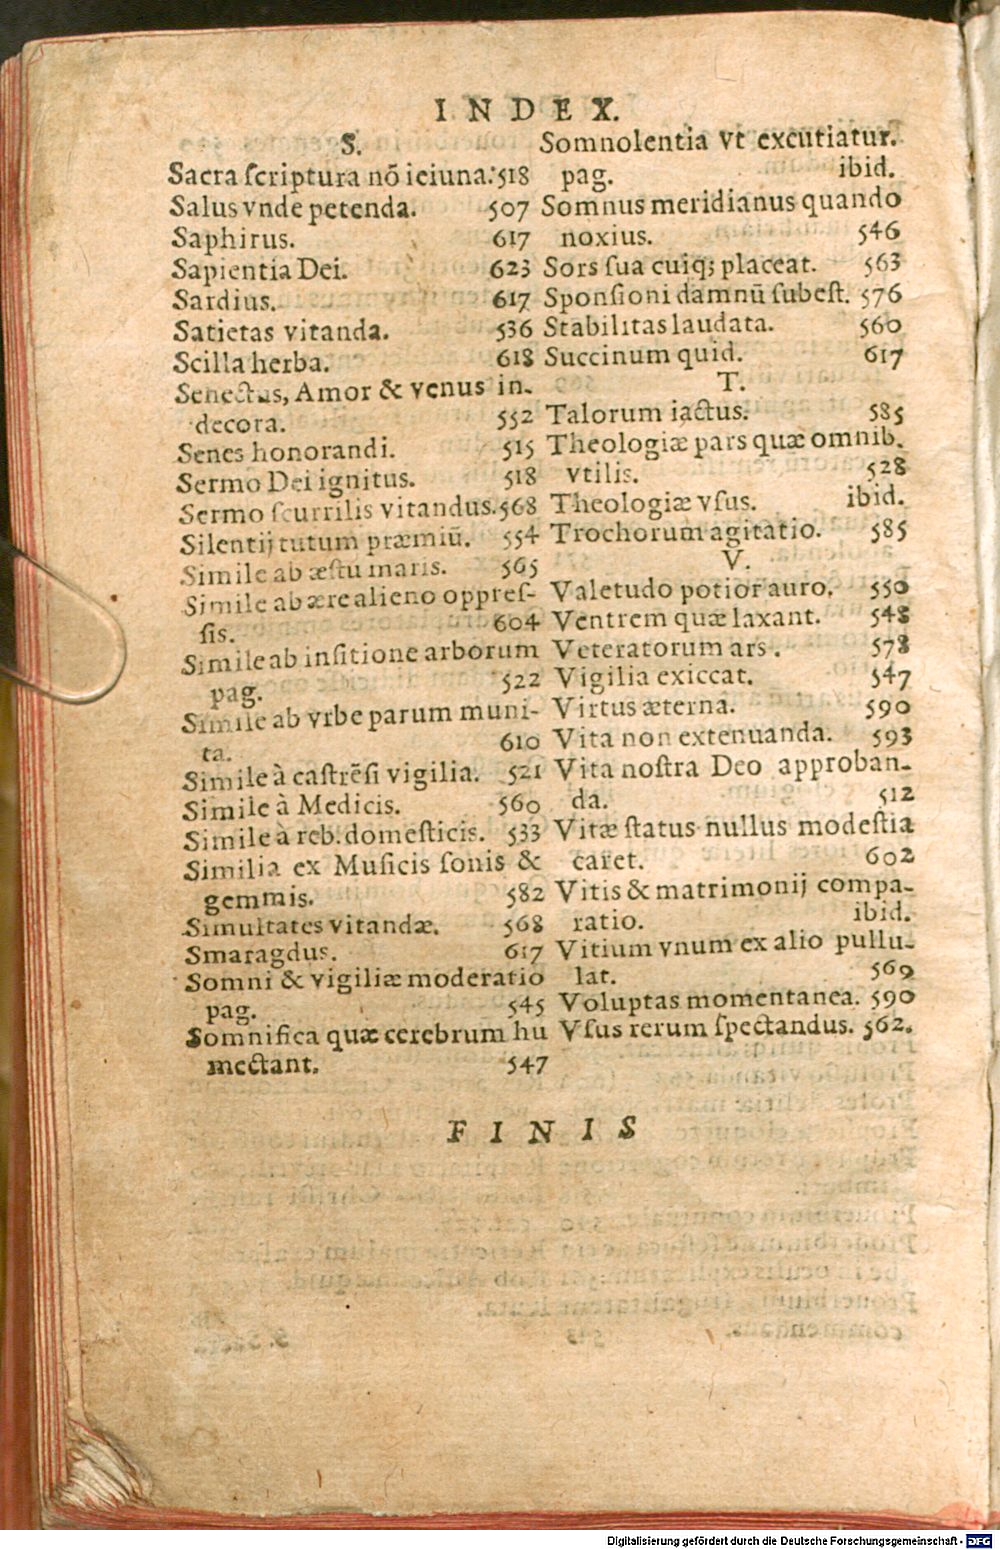 INDEX.
S.
Sacra scriptura nõ ieiuna. 518
Salus vnde petenda. 507
Saphirus. 617
Sapientia Dei. 623
Sardius. 617
Satietas vitanda. 536
Scilla herba. 618
Senectus, Amor & venus in-
decora. 552
Senes honorandi. 515
Sermo Dei ignitus. 518
Sermo scurrilis vitandus. 568
Silentij tutum præmiũ. 554
Simile ab æstu maris. 565
Simile ab ære alieno oppres-
sis. 604
Simile ab insitione arborum
pag. 522
Simile ab vrbe parum muni-
ta. 610
Simile à castrẽsi vigilia. 521
Simile à Medicis. 560
Simile à reb. domesticis. 533
Similia ex Musicis sonis &
gemmis. 582
Simultates vitandæ. 568
Smaragdus. 617
Somni & vigiliæ moderatio
pag. 545
Somnifica quæ cerebrum hu
mectant. 547
Somnolentia vt excutiatur.
pag. ibid.
Somnus meridianus quando
noxius. 546
Sors sua cuiq; placeat. 563
Sponsioni damnũ subest. 576
Stabilitas laudata. 560
Succinum quid. 617
T.
Talorum iactus. 585
Theologiæ pars quæ omnib.
vtilis. 528
Theologiæ vsus. ibid.
Trochorum agitatio. 585
V.
Valetudo potior auro. 550
Ventrem quæ laxant. 548
Veteratorum ars. 578
Vigilia exiccat. 547
Virtus æterna. 590
Vita non extenuanda. 593
Vita nostra Deo approban-
da. 512
Vitæ status nullus modestia
caret. 602
Vitis & matrimonij compa-
ratio. ibid.
Vitium vnum ex alio pullu-
lat. 569
Voluptas momentanea. 590
Vsus rerum spectandus. 562.
FINIS
Digitalisierung gefördert durch die Deutsche Forschungsgemeinschaft - DFG